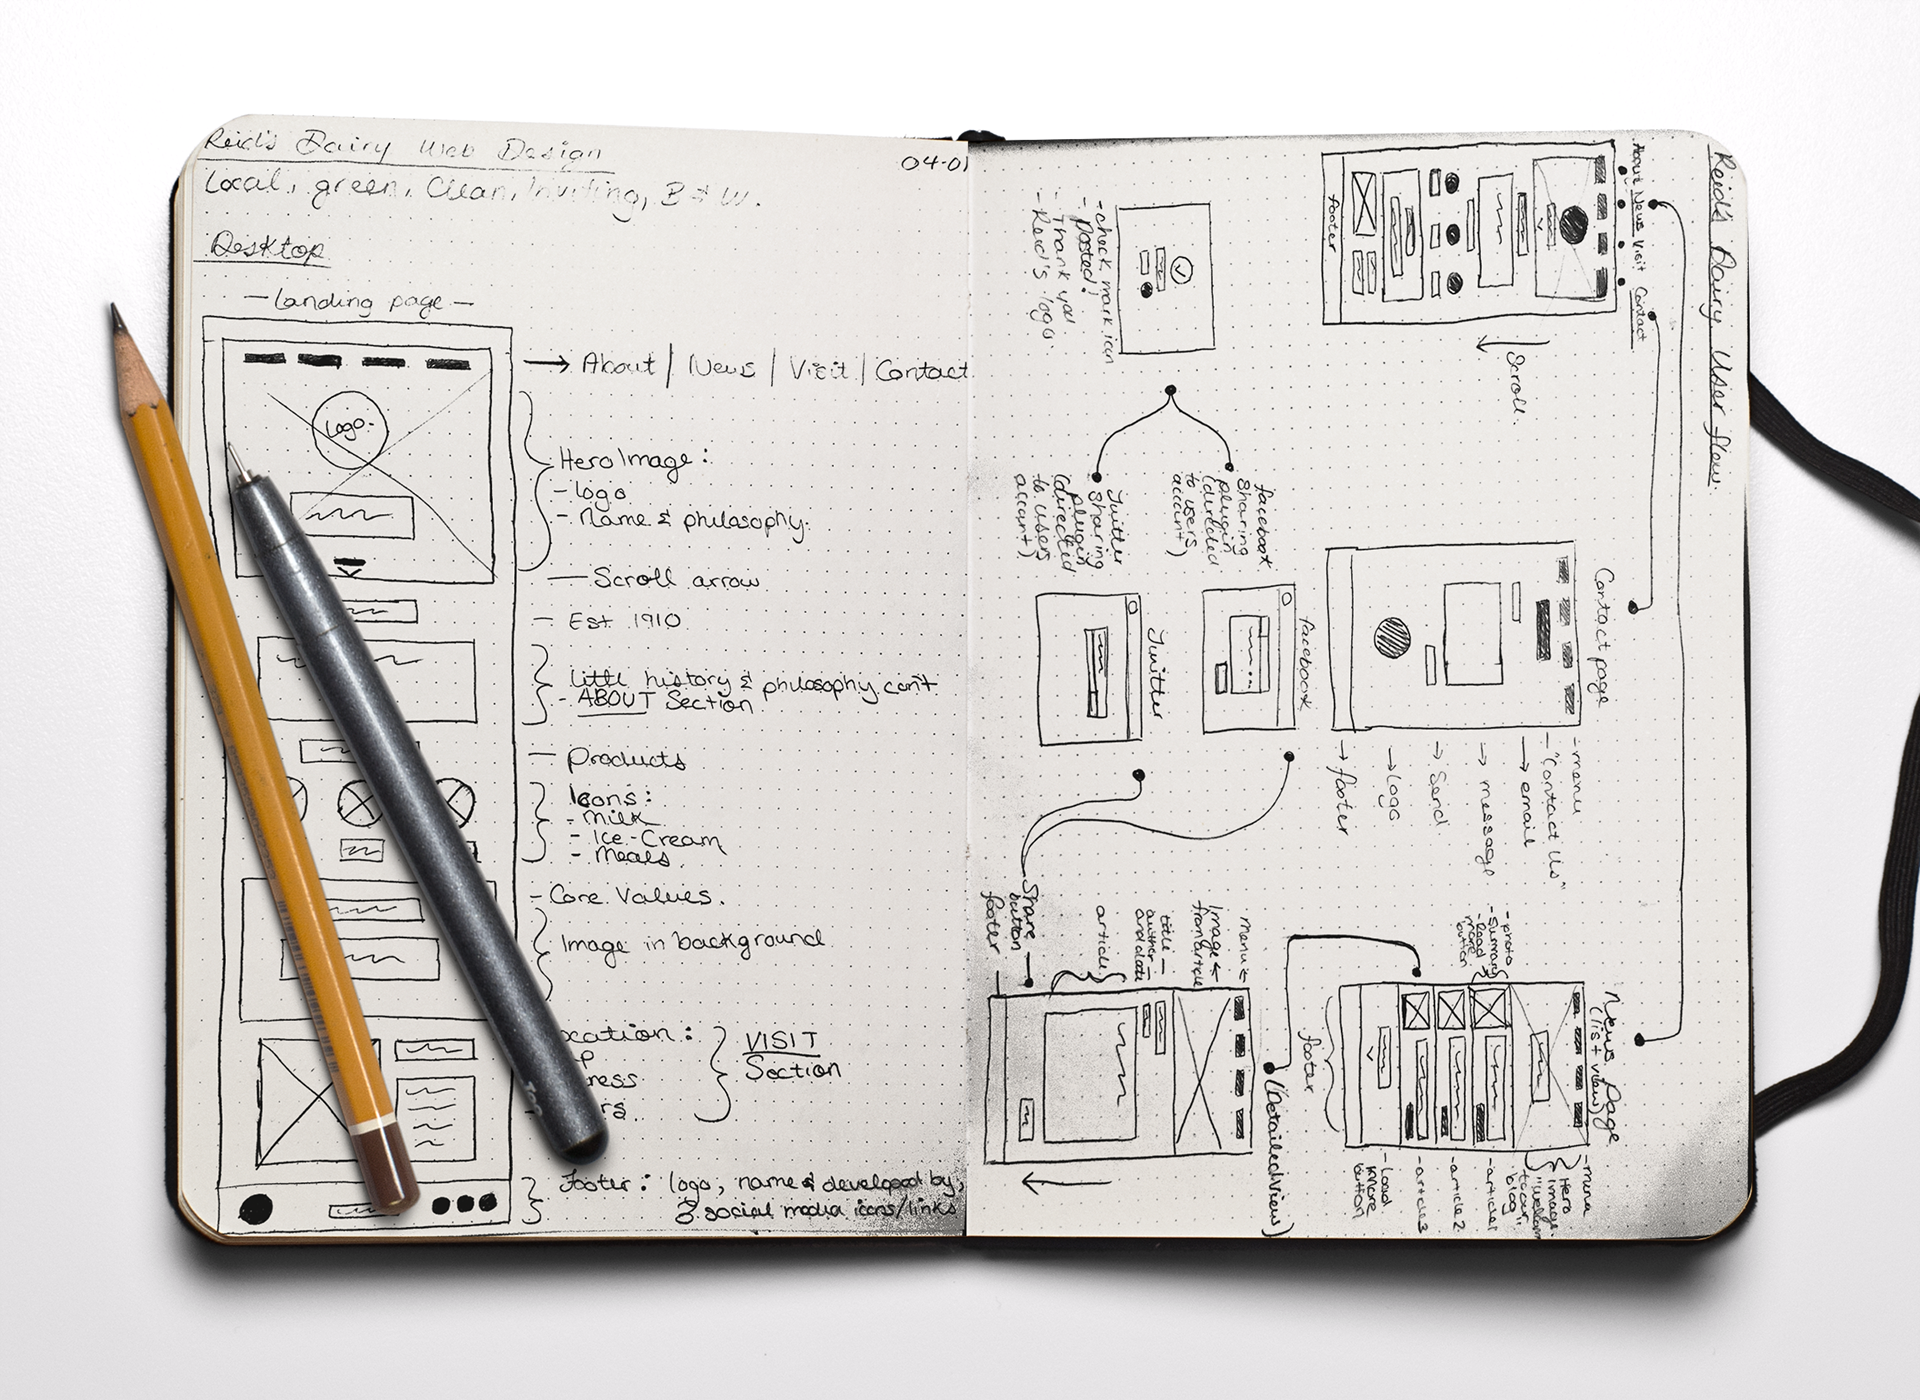 Reid's Dairy Web Design
04-01
Local, green, Clean, Inviting, B & W.
Desktop
- landing page -
About / News / Visit / Contact
Logo.
Hero Image:
- logo
- Name & philosophy.
- Scroll arrow
- Est. 1910
little history & philosophy con't
- ABOUT Section
- Products
Icons:
- Milk
- Ice-Cream
- Meals.
- Core Values.
Image in background
VISIT
Section
Footer: logo, name & developed by,
& social media icons/links
Reid's Dairy User flow.
About News Visit Contact
footer
Scroll.
- check mark icon
- Posted!
- Thank you
- Reid's logo
facebook
sharing
plugin
(directed
to users
account)
Twitter
sharing
plugin
(directed
to users
account)
Contact page
- menu
- "Contact Us"
email
message
Send
logo
footer
facebook
Twitter
News Page
(list view)
- photo
- Summary
- read
more
button
- menu
Hero
image
blog"
- article1
- article 2
- article 3
- Load
more
button
footer
(Detailed View)
menu
image
from article
title
author
and date
article
Share
button
footer